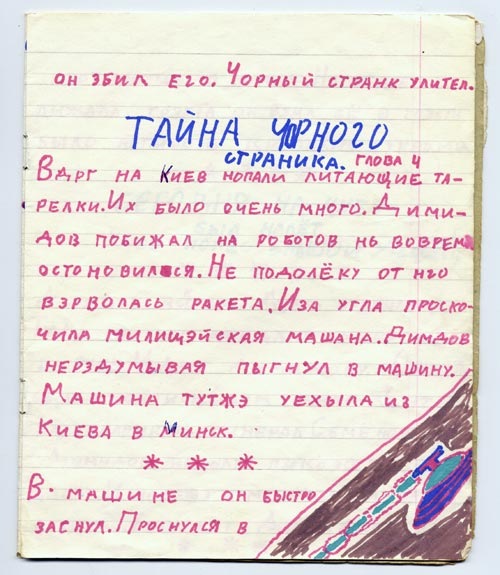 он збил его. Чорный странк улител.
ТАЙНА ЧОРНОГО
СТРАНИКА. ГЛОВА 4
Вдрг на Киев нопали литающие та-
релки. Их было очень много. Дими-
дов побижал на роботов нь воврем
остоновился. Не подолёку от нго
взрволась ракета. Иза угла проско-
чила милицэйская машана. Димдов
нерздумывая пыгнул в машину.
Машина тутжэ уехыла из
Киева в Минск.
* * *
В. машине он быстро
заснул. Проснулся в